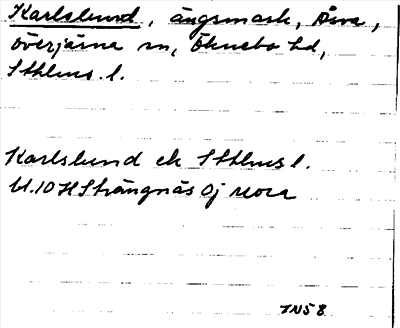 Karlslund, ängsmark, Åva,
Överjärna sn, Öknebo hd,
Sthlms. l.
Karlslund ek Sthlms l.
bl. 10 H Strängnäs Oj
TN58